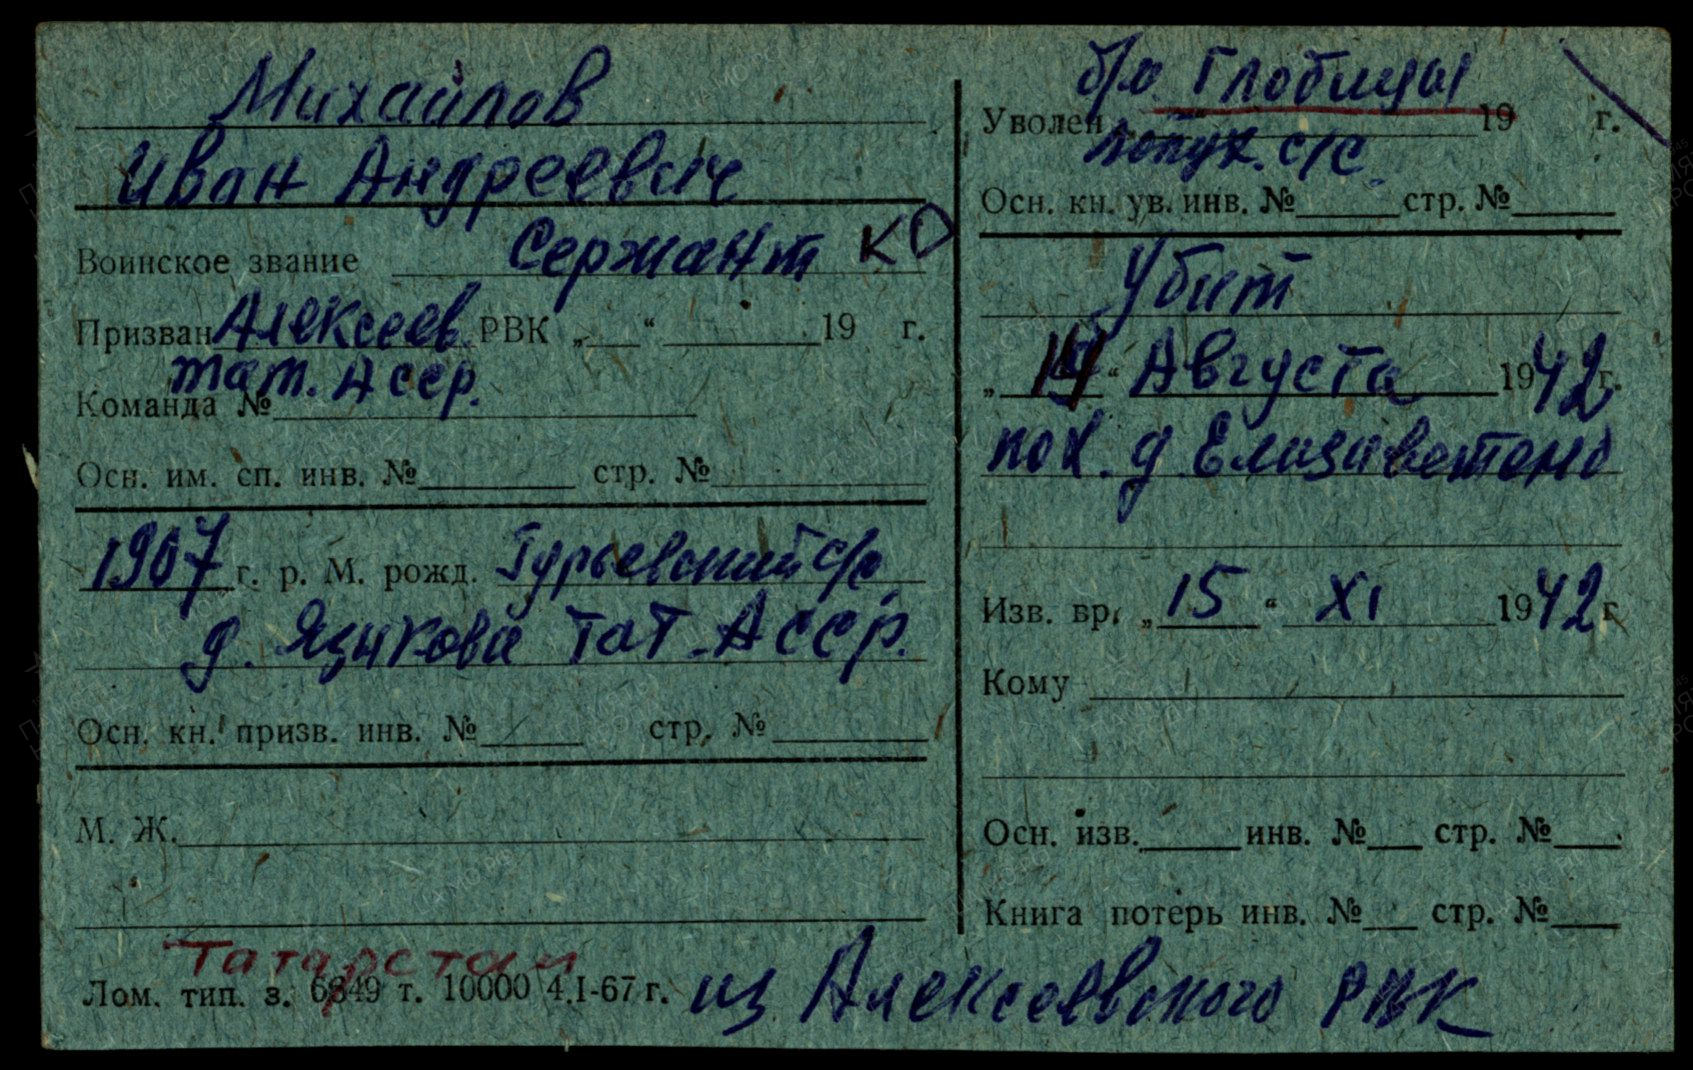 Михайлов
Иван Андреевич
Воинское звание Сержант КО
Призван Алексеев. РВК „ “ 19 г.
тат. Асср.
Команда №
Осн. им. сп. инв. № стр. №
1907 г. р. М. рожд. Гурьевский с/с
д. Языкова Тат. Асср.
Осн. кн. призв. инв. № стр. №
М. Ж.
Татарстан
Лом. тип. з. 6849 т. 10000 4.I-67 г.
б/о Глобицы
Уволен „ “ 19 г.
Лопух. с/с.
Осн. кн. ув. инв. № стр. №
Убит
„ 14 “ Августа 1942 г.
пох. д. Елизаветено
Изв. вр. „ 15 “ XI 1942 г.
Кому
Осн. изв. инв. № стр. №
Книга потерь инв. № стр. №
из Алексеевского РВК